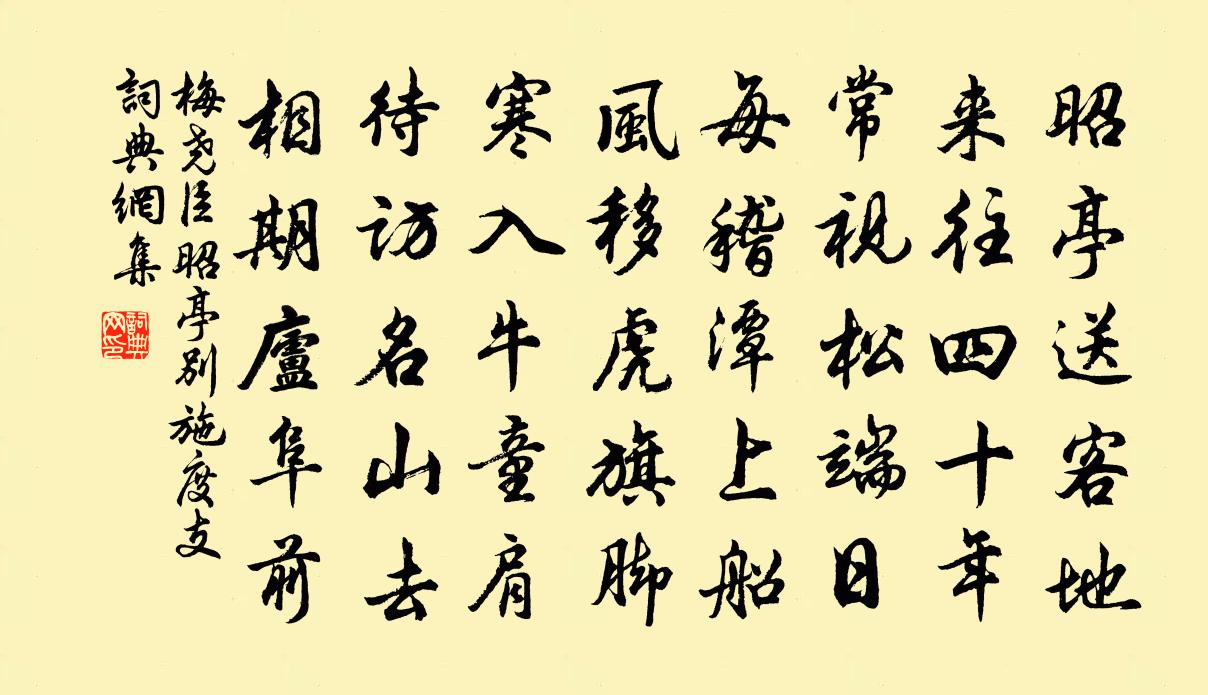 昭亭送客地
来往四十年
常視松端日
每稽潭上船
風移虎旗脚
寒入牛童肩
待訪名山去
相期廬阜前
梅尧臣昭亭别施度支
詞典網集
詞典网印